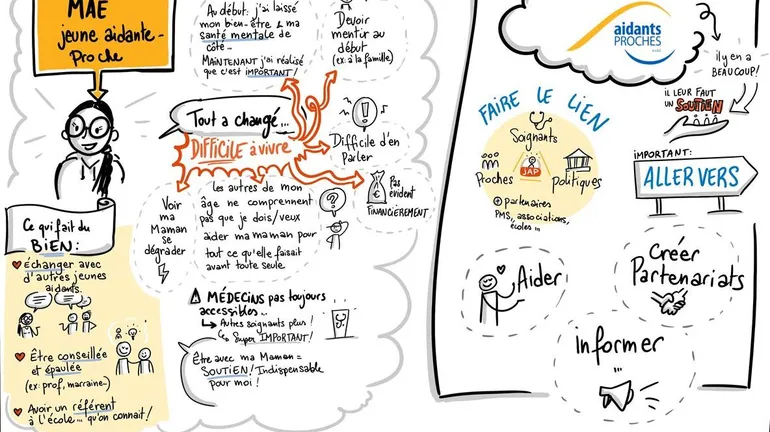 MAE
jeune aidante-
proche
Au début: j'ai laissé
mon bien-être & ma
santé mentale de
côté...
MAINTENANT j'ai réalisé
que c'est IMPORTANT!
Devoir
mentir au
début
(ex: à la famille)
Tout a changé...
DIFFICILE à vivre
Difficile d'en
Parler
Pas
évident
FINANCIÈREMENT
Voir
ma
Maman
se
dégrader
les autres de mon
âge ne comprennent
pas que je dois/veux
aider ma maman pour
tout ce qu'elle faisait
avant toute seule.
Ce qui fait du
BIEN:
Échanger avec
d'autres jeunes
aidants.
Être conseillée
et épaulée
(ex: prof, marraine..)
Avoir un référent
à l'école... qu'on connait!
MÉDECINS pas toujours
accessibles...
Autres soignants plus!
Super IMPORTANT!
Être avec ma Maman =
SOUTIEN! Indispensable
pour moi!
aidants
PROCHES
il y en a
BEAUCOUP!
IL LEUR FAUT
un SOUTIEN
FAIRE LE LIEN
Soignants
Proches
JAP
politiques
+ partenaires
PMS, associations,
écoles...
IMPORTANT:
ALLER VERS
Aider
Créer
Partenariats
Informer
...